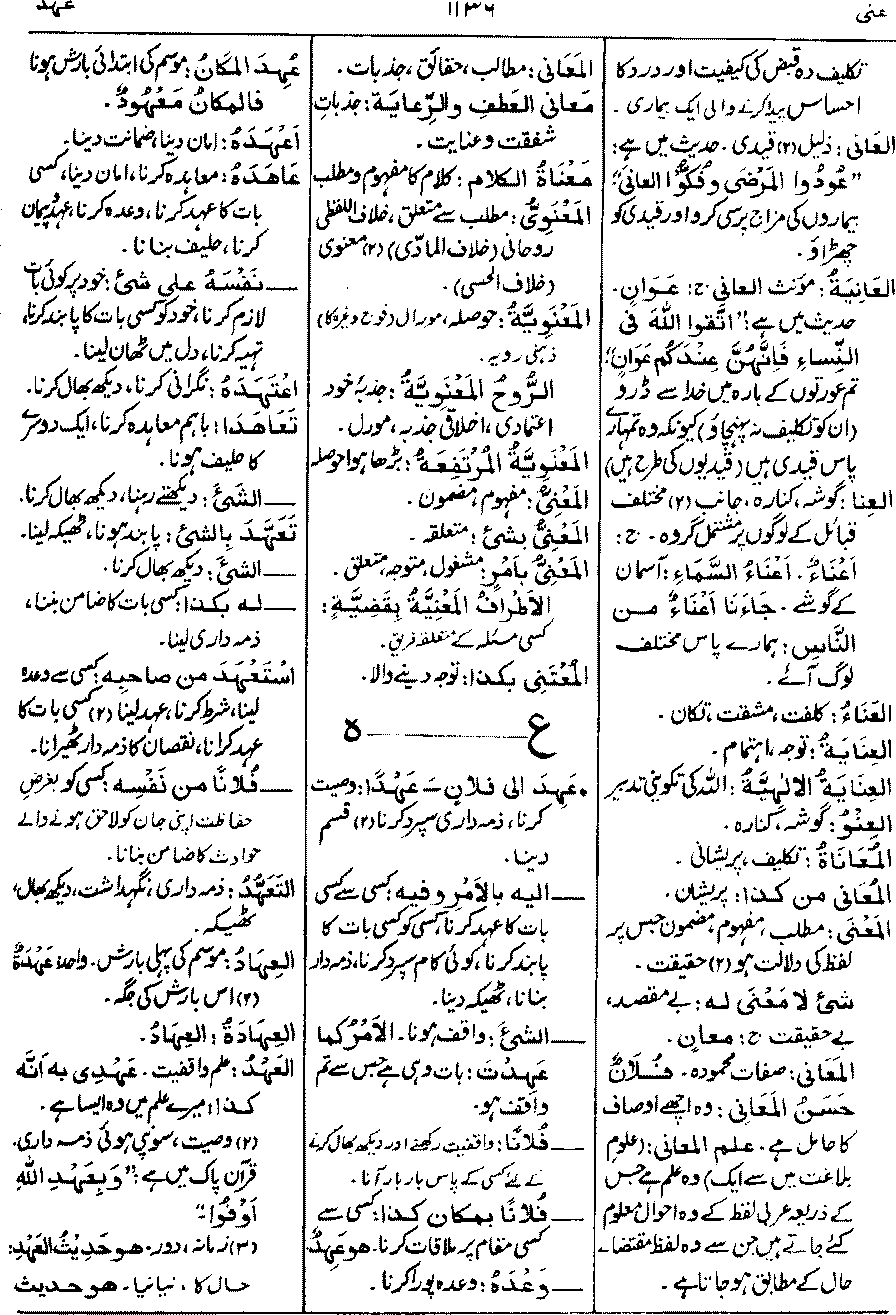 عنی
۱۱۳۶
عهد
تکلیف دہ قبض کی کیفیت اور درد کا
احساس پیدا کرنے والی ایک بیماری ۔
العَانی : ذلیل (۲) قیدی ۔ حدیث میں ہے:
”عُودُوا المَرْضَى وفُكُّوا العانیَ“
بیماروں کی مزاج پرسی کرو اور قیدی کو
چھڑاؤ ۔
العَانِيَةُ : مؤنث العانی ج: عَوَانٍ.
حدیث میں ہے: ”اتَّقوا اللهَ فی
النِّساءِ فَإنَّهُنَّ عِنْدَكُم عَوَانٍ“
تم عورتوں کے بارہ میں خدا سے ڈرو
(ان کو تکلیف نہ پہنچاؤ) کیونکہ وہ تمہارے
پاس قیدی ہیں (قیدیوں کی طرح ہیں)
العِنا : گوشہ، کنارہ، جانب (۲) مختلف
قبائل کے لوگوں پر مشتمل گروہ ۔ ج:
أعْنَاءٌ . أعْنَاءُ السَّمَاءِ : آسمان
کے گوشے ۔ جَاءَنَا أعْنَاءٌ من
النَّاسِ : ہمارے پاس مختلف
لوگ آئے ۔
العَناءُ : کلفت، مشقت، تکان ۔
العِنايَةُ : توجہ، اہتمام ۔
العِنايَةُ الإلٰهيَّةُ : اللہ کی تکوینی تدبیر
العِنْوُ : گوشہ، کنارہ ۔
المُعَانَاةُ : تکلیف، پریشانی ۔
المُعَانی من كذا : پریشان ۔
المَعْنَى : مطلب، مفہوم، مضمون جس پر
لفظ کی دلالت ہو (۲) حقیقت ۔
شئٌ لا مَعْنَى له : بے مقصد،
بے حقیقت ج: معانٍ.
المَعَانی : صفات محمودہ ۔ فُلَانٌ
حَسَنُ المَعَانی : وہ اچھے اوصاف
کا حامل ہے ۔ علم المعانی : (علوم
بلاغت میں سے ایک) وہ علم ہے جس
کے ذریعہ عربی لفظ کے وہ احوال معلوم
کئے جاتے ہیں جن سے وہ لفظ مقتضائے
حال کے مطابق ہو جاتا ہے ۔
المَعَانی : مطالب، حقائق، جذبات ۔
مَعَانی العَطْفِ والرِّعايَة : جذباتِ
شفقت و عنایت ۔
مَعْنَاةُ الكَلام : کلام کا مفہوم و مطلب
المَعْنَوِيُّ : مطلب سے متعلق، خلاف اللفظی
روحانی (خلاف المادّی) (۲) معنوی
(خلاف الحسی) ۔
المَعْنَوِيَّةُ : حوصلہ، مورال (فوج وغیرہ کا)
ذہنی رویہ ۔
الرُّوحُ المَعْنَوِيَّةُ : جذبۂ خود
اعتمادی، اخلاقی جذبہ، مورل ۔
المَعْنَوِيَّةُ المُرْتَفِعَةُ : بڑھا ہوا حوصلہ
المَعْنِيُّ : مفہوم، مضمون ۔
المَعْنِيُّ بشئٍ : متعلقہ ۔
المَعْنِيُّ بأمْرٍ : مشغول، متوجہ، متعلق ۔
الأطْرافُ المَعْنِيَّةُ بِقَضِيَّةٍ :
کسی مسئلہ کے متعلقہ فریق ۔
المُعْتَنِی بكذا : توجہ دینے والا ۔
ع ــــــــ ہ
• عَهِدَ الی فلانٍ ـَ عَهْدًا : وصیت
کرنا، ذمہ داری سپرد کرنا (۲) قسم
دینا ۔
ــــ الیه بالأمْرِ وفیه : کسی سے کسی
بات کا عہد کرنا، کسی کو کسی بات کا
پابند کرنا، کوئی کام سپرد کرنا، ذمہ دار
بنانا، ٹھیکہ دینا ۔
ــــ الشئَ : واقف ہونا ۔ الأمْرُ كما
عَهِدْتَ : بات وہی ہے جس سے تم
واقف ہو ۔
ــــ فُلانًا : واقفیت رکھنے اور دیکھ بھال کرنے
کے لئے کسی کے پاس بار بار آنا ۔
ــــ فُلانًا بمكان كذا : کسی سے
کسی مقام پر ملاقات کرنا ۔ هو عَهِدٌ
ــــ وَعْدَهُ : وعدہ پورا کرنا ۔
عُهِدَ المَكانُ : موسم کی ابتدائی بارش ہونا
فالمكانُ مَعْهُودٌ .
أعْهَدَهُ : امان دینا، ضمانت دینا ۔
عَاهَدَهُ : معاہدہ کرنا، امان دینا، کسی
بات کا عہد کرنا، وعدہ کرنا، عہد و پیمان
کرنا، حلیف بنانا ۔
ــــ نَفْسَهُ علی شئٍ : خود پر کوئی بات
لازم کرنا، خود کو کسی بات کا پابند کرنا،
تہیہ کرنا، دل میں ٹھان لینا ۔
اعْتَهَدَهُ : نگرانی کرنا، دیکھ بھال کرنا ۔
تَعَاهَدَا : باہم معاہدہ کرنا، ایک دوسرے
کا حلیف ہونا ۔
ــــ الشئَ : دیکھتے رہنا، دیکھ بھال کرنا ۔
تَعَهَّدَ بالشئِ : پابند ہونا، ٹھیکہ لینا ۔
ــــ الشئَ : دیکھ بھال کرنا ۔
ــــ له بكذا : کسی بات کا ضامن بننا،
ذمہ داری لینا ۔
اسْتَعْهَدَ من صاحبِه : کسی سے وعدہ
لینا، شرط کرنا، عہد لینا (۲) کسی بات کا
عہد کرانا، نقصان کا ذمہ دار ٹھیرانا ۔
ــــ فُلانًا من نَفْسِه : کسی کو بغرض
حفاظت اپنی جان کو لاحق ہونے والے
حوادث کا ضامن بنانا ۔
التَّعَهُّدُ : ذمہ داری، نگہداشت، دیکھ بھال،
ٹھیکہ ۔
العِهَادُ : موسم کی پہلی بارش ۔ واحد: عَهْدَةٌ
(۲) اس بارش کی جگہ ۔
العِهَادَةُ : العِهَادُ.
العَهْدُ : علم واقفیت ۔ عَهْدِی به أنَّه
كذا : میرے علم میں وہ ایسا ہے ۔
(۲) وصیت، سونپی ہوئی ذمہ داری ۔
قرآن پاک میں ہے: ”وَبِعَهْدِ اللهِ
أوْفُوا“
(۳) زمانہ، دور ۔ هو حَدِيثُ العَهْدِ :
حال کا، نیا نیا ۔ هو حديث